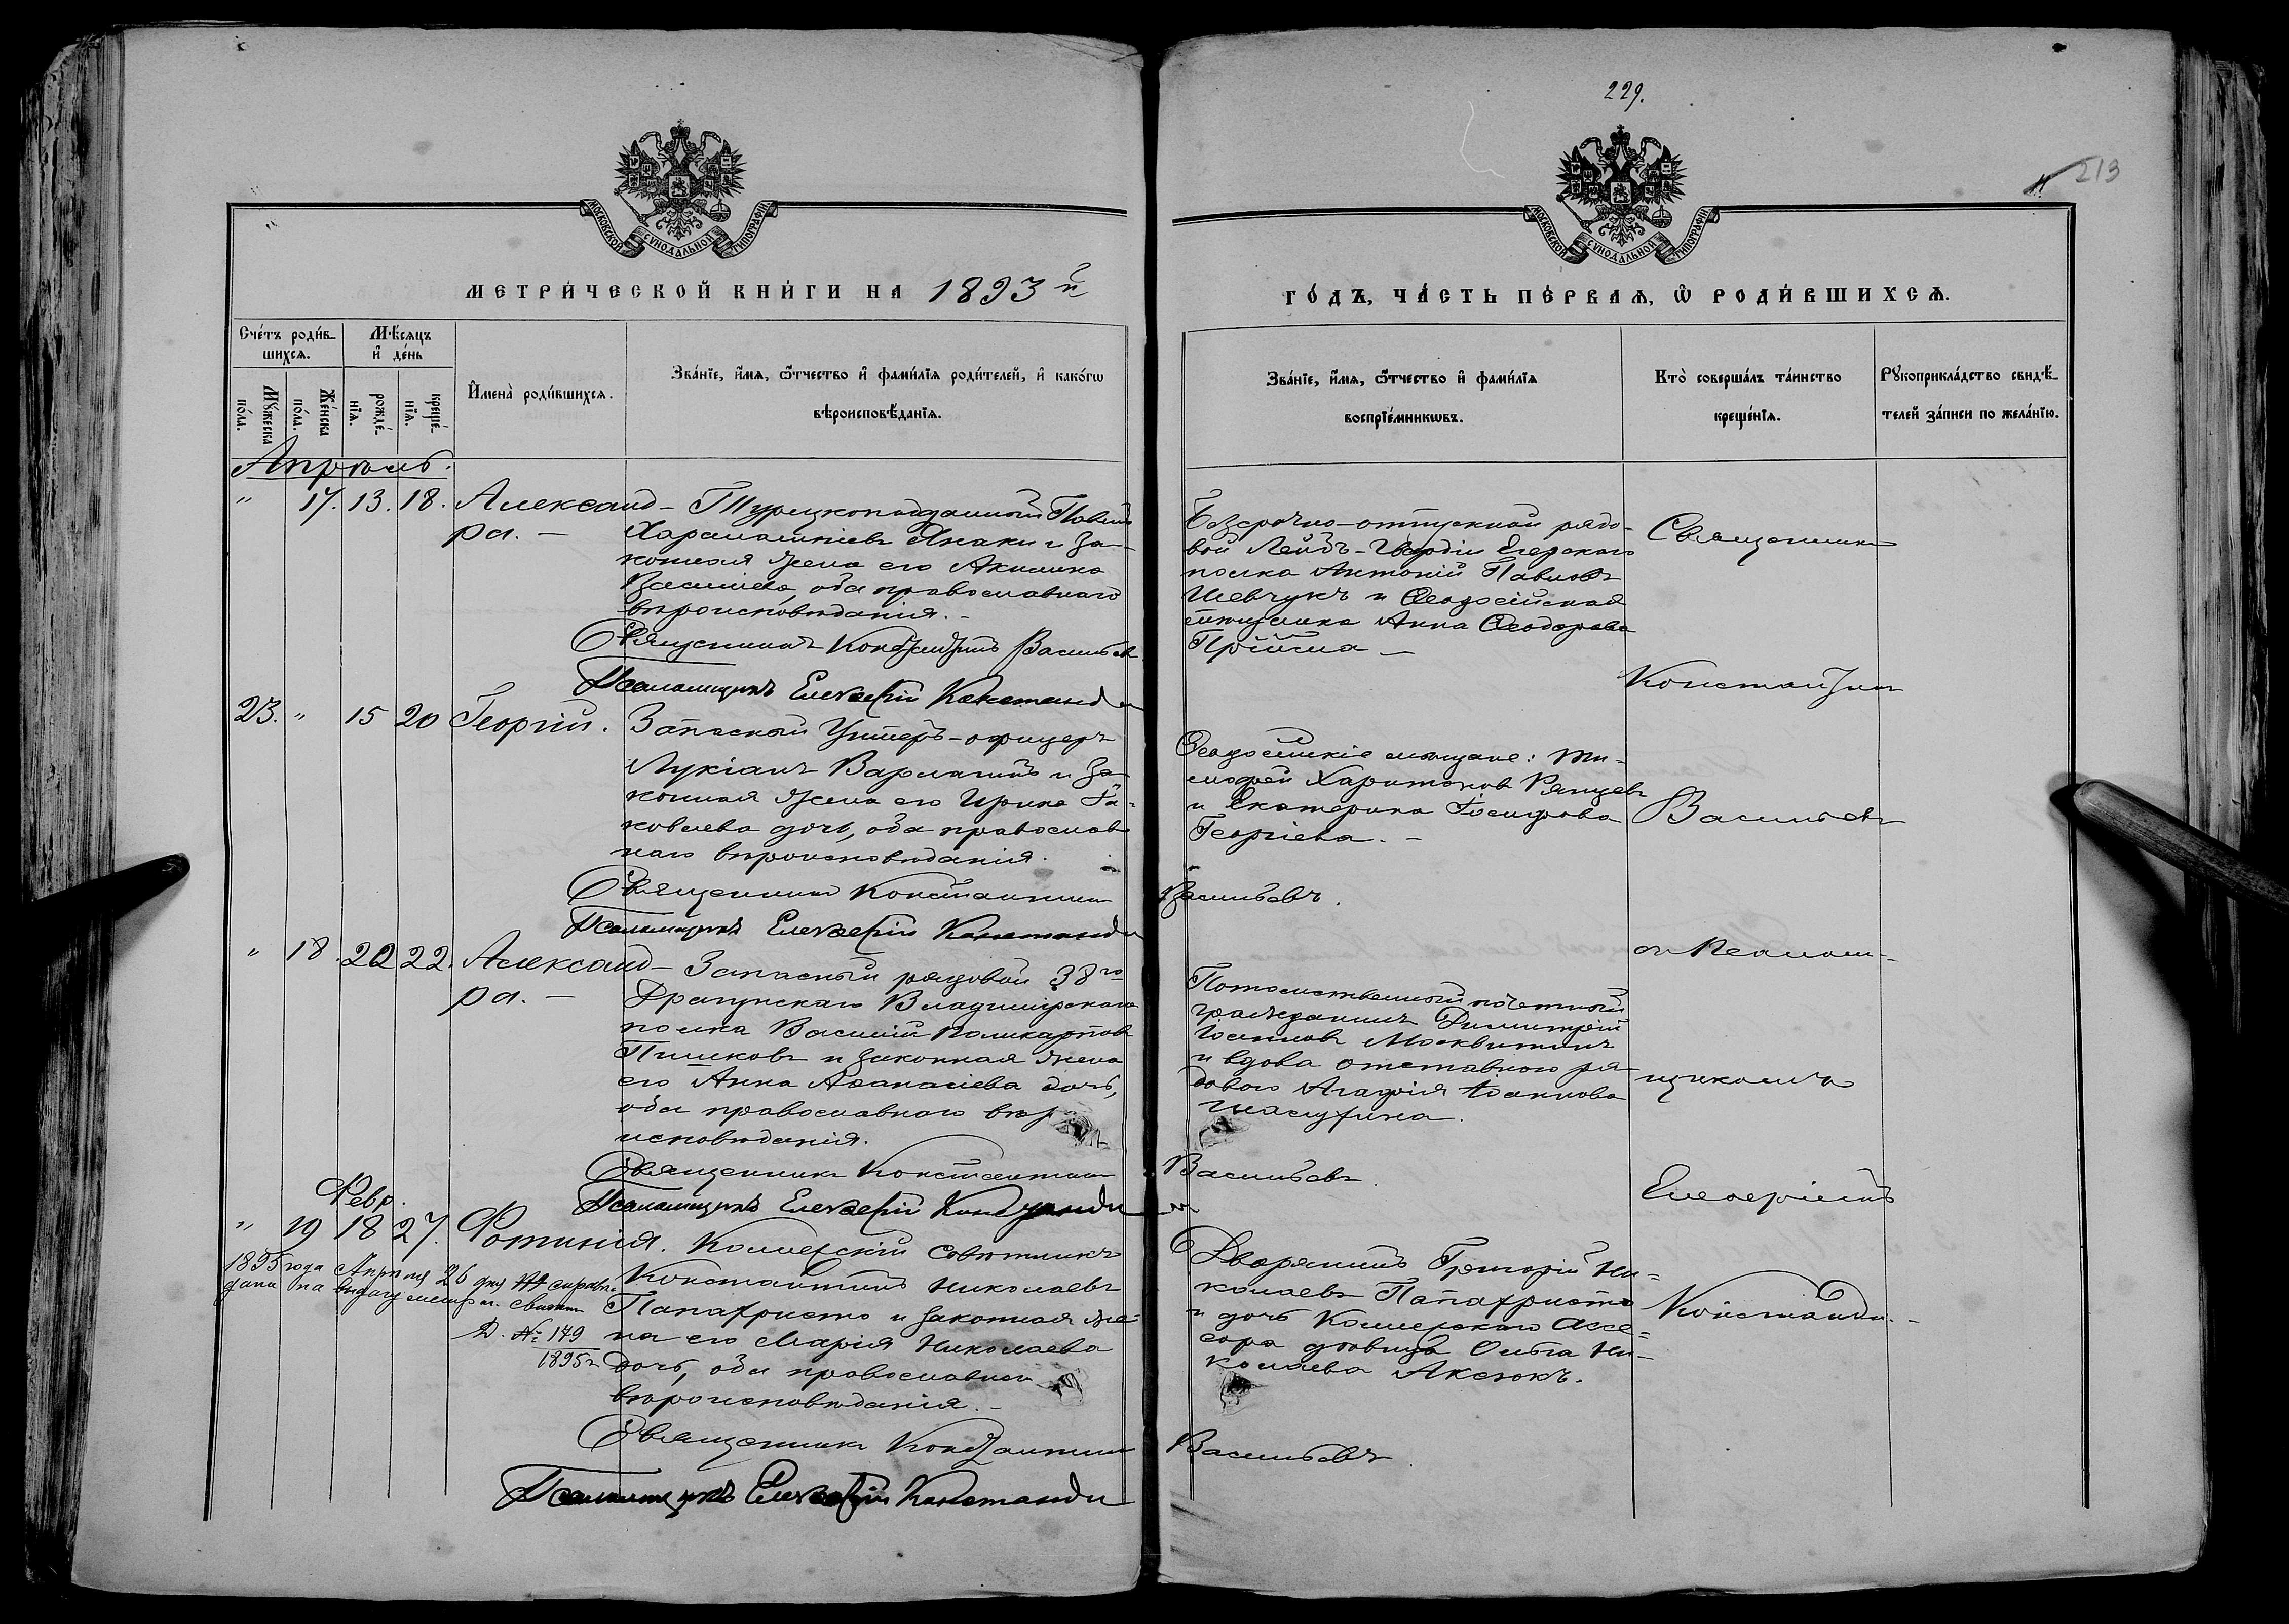 229.
213
МОСКОВСКОЙ СѴНОДАЛЬНОЙ ТИПОГРАФІИ
МОСКОВСКОЙ СѴНОДАЛЬНОЙ ТИПОГРАФІИ
МЕТРИ́ЧЕСКОЙ КНИ́ГИ НА 1893 й
ГО́ДЪ, ЧА́СТЬ ПЕ́РВАѦ, Ѽ РОДИ́ВШИХСѦ.
Сче́тъ роди́в-
шихсѧ.
Мѣ́сѧцъ
и҆ де́нь
Мꙋ́жеска
по́ла.
Же́нска
по́ла.
рожде́-
нїѧ.
креще́-
нїѧ.
И҆мена̀ роди́вшихсѧ.
Зва́нїе, и҆́мѧ, ѻ҆́тчество и҆ фами́лїѧ роди́телей, и҆ како́гѡ
вѣроисповѣ́данїѧ.
Зва́нїе, и҆́мѧ, ѻ҆́тчество и҆ фами́лїѧ
воспрїе́мникѡвъ.
Кто̀ соверша́лъ та́инство
креще́нїѧ.
Рꙋкоприкла́дство свидѣ́-
телей за́писи по жела́нїю.
Апрѣль.
" 17. 13. 18. Александ-
ра. —
Турецкоподданный Павелъ
Харалампіевъ Янаки и за-
конная жена его Акилина
Васильева, оба православнаго
вѣроисповѣданія. -
Священникъ Константинъ Васильевъ
Псаломщикъ Елевферій Константи
Безсрочно-отпускной рядо-
вой Лейбъ-Гвардіи Егерскаго
полка Антоній Павловъ
Шевчукъ и Ѳеодосійская
мѣщанка Анна Ѳеодорова
Священникъ
Константинъ
23. " 15 20 Георгій.
Запасный Унтеръ-офицеръ
Лукіанъ Варламовъ и за-
конная жена его Ирина Я-
ковлева дочь, оба православ-
наго вѣроисповѣданія.
Священникъ Константинъ
Васильевъ.
Псаломщикъ Елевферій Константи
Ѳеодосійскіе мѣщане: Ти-
моѳей Харитоновъ Рянцевъ
и Екатерина Іосифова
Георгіева. -
Васильевъ
" 18. 20 22. Александ-
ра. —
Запасный рядовой 38го
Драгунскаго Владимірскаго
полка Василій Поликарповъ
Пишковъ и законная жена
его Анна Аѳанасіева дочь,
оба православнаго вѣро
исповѣданія.
Священникъ Константинъ
Васильевъ.
Псаломщикъ Елевферій Константи
Потомственный почетный
гражданинъ Димитрій
Іоанновъ Москвитинъ
и вдова отставного ря-
дового Агафія Іоаннова
съ Псалом-
щикомъ
Елевферіемъ
Февр.
" 19 18 27. Фотинія.
1895 года Апрѣля 26 дня
на выдачу метр.
Д. № 179
1895 г.
Коллежскій Совѣтникъ
Константинъ Николаевъ
Папахристо и законная же-
на его Марія Николаева
дочь, оба православнаго
вѣроисповѣданія. -
Священникъ Константинъ
Васильевъ.
Псаломщикъ Елевферій Константи
Дворянинъ Григорій Ни-
колаевъ Папахристо
и дочь Коллежскаго Ассе-
сора дѣвица Ольга Ни-
колаева Аксюкъ.
Константи. -